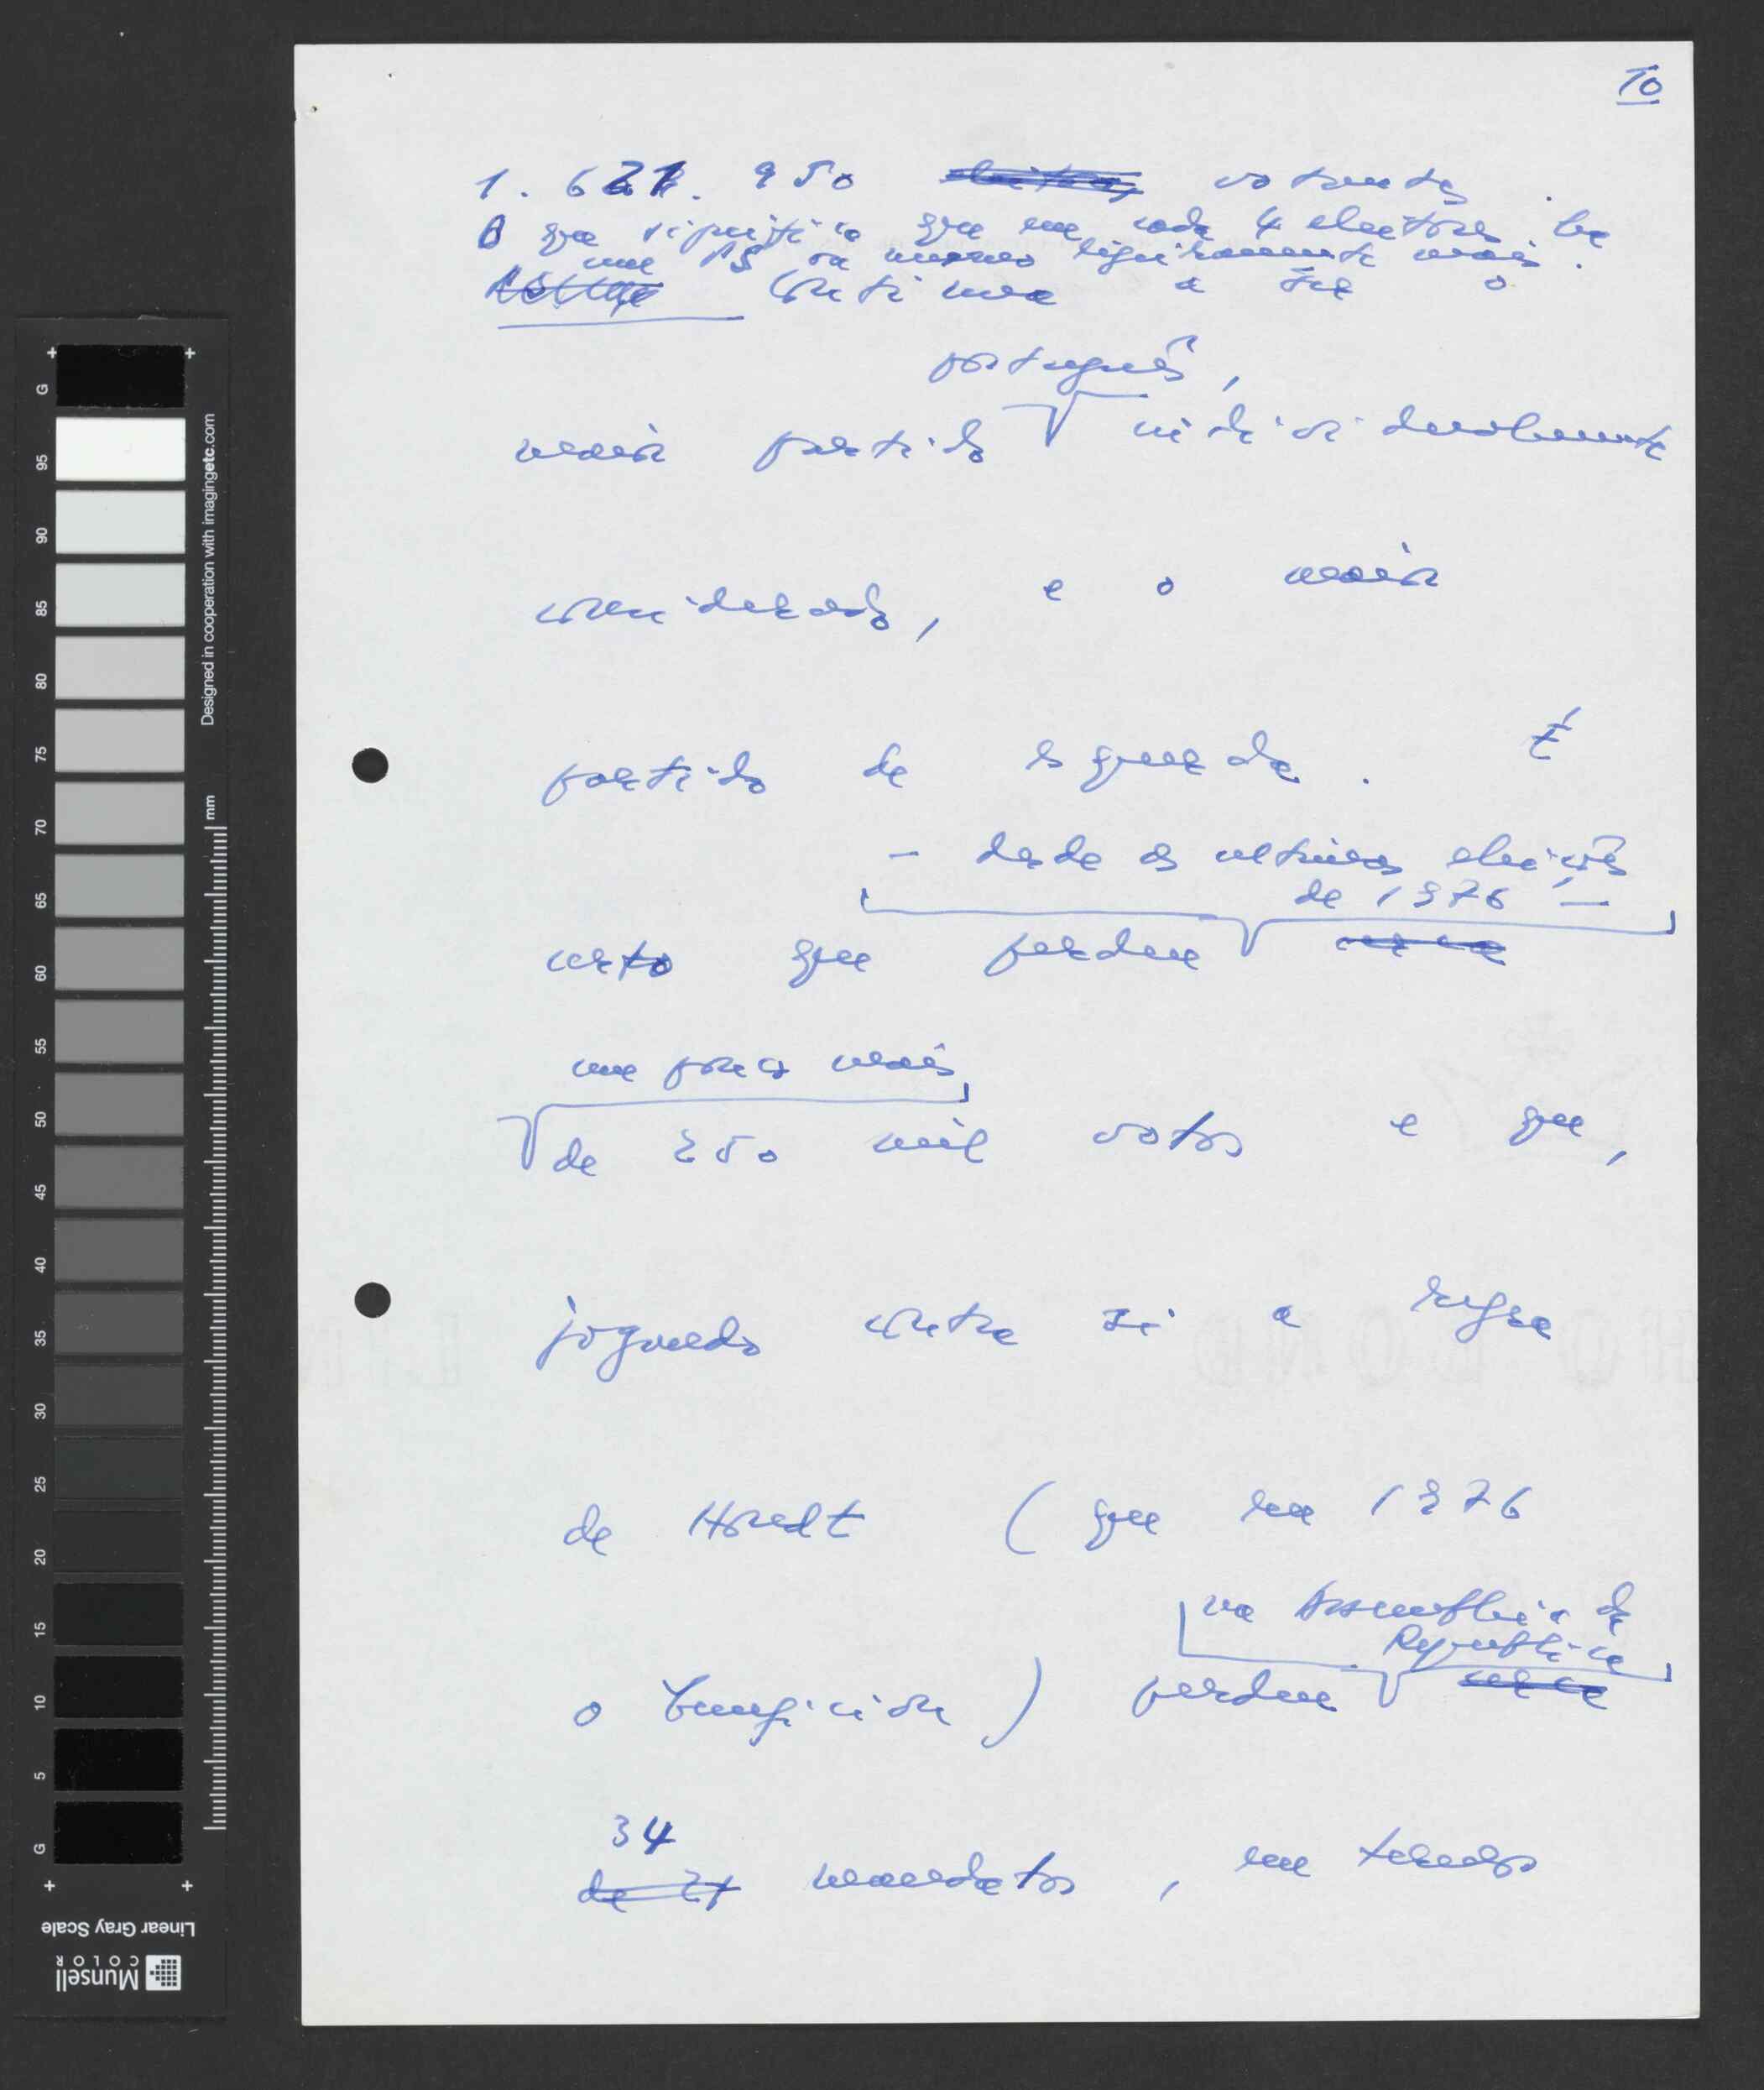 10
1.621.950 votantes.
O que significa que em cada 4 eleitores há
um PS ou mesmo ligeiramente mais.
Continua a ser o
português,
maior partido individualmente
considerado, e o maior
partido de esquerda. É
– desde as ultimas eleições
de 1976 –
certo que perdeu
um pouco mais
de 250 mil votos e que,
jogando contra si a regra
de Hondt (que em 1976
na Assembleia da
República
o beneficiou) perdeu
34
mandatos, em termos
G
95
90
85
80
75
70
65
60
55
50
45
40
35
30
25
20
15
10
5
G
Designed in cooperation with imagingetc.com
mm
Linear Gray Scale
Munsell
COLOR